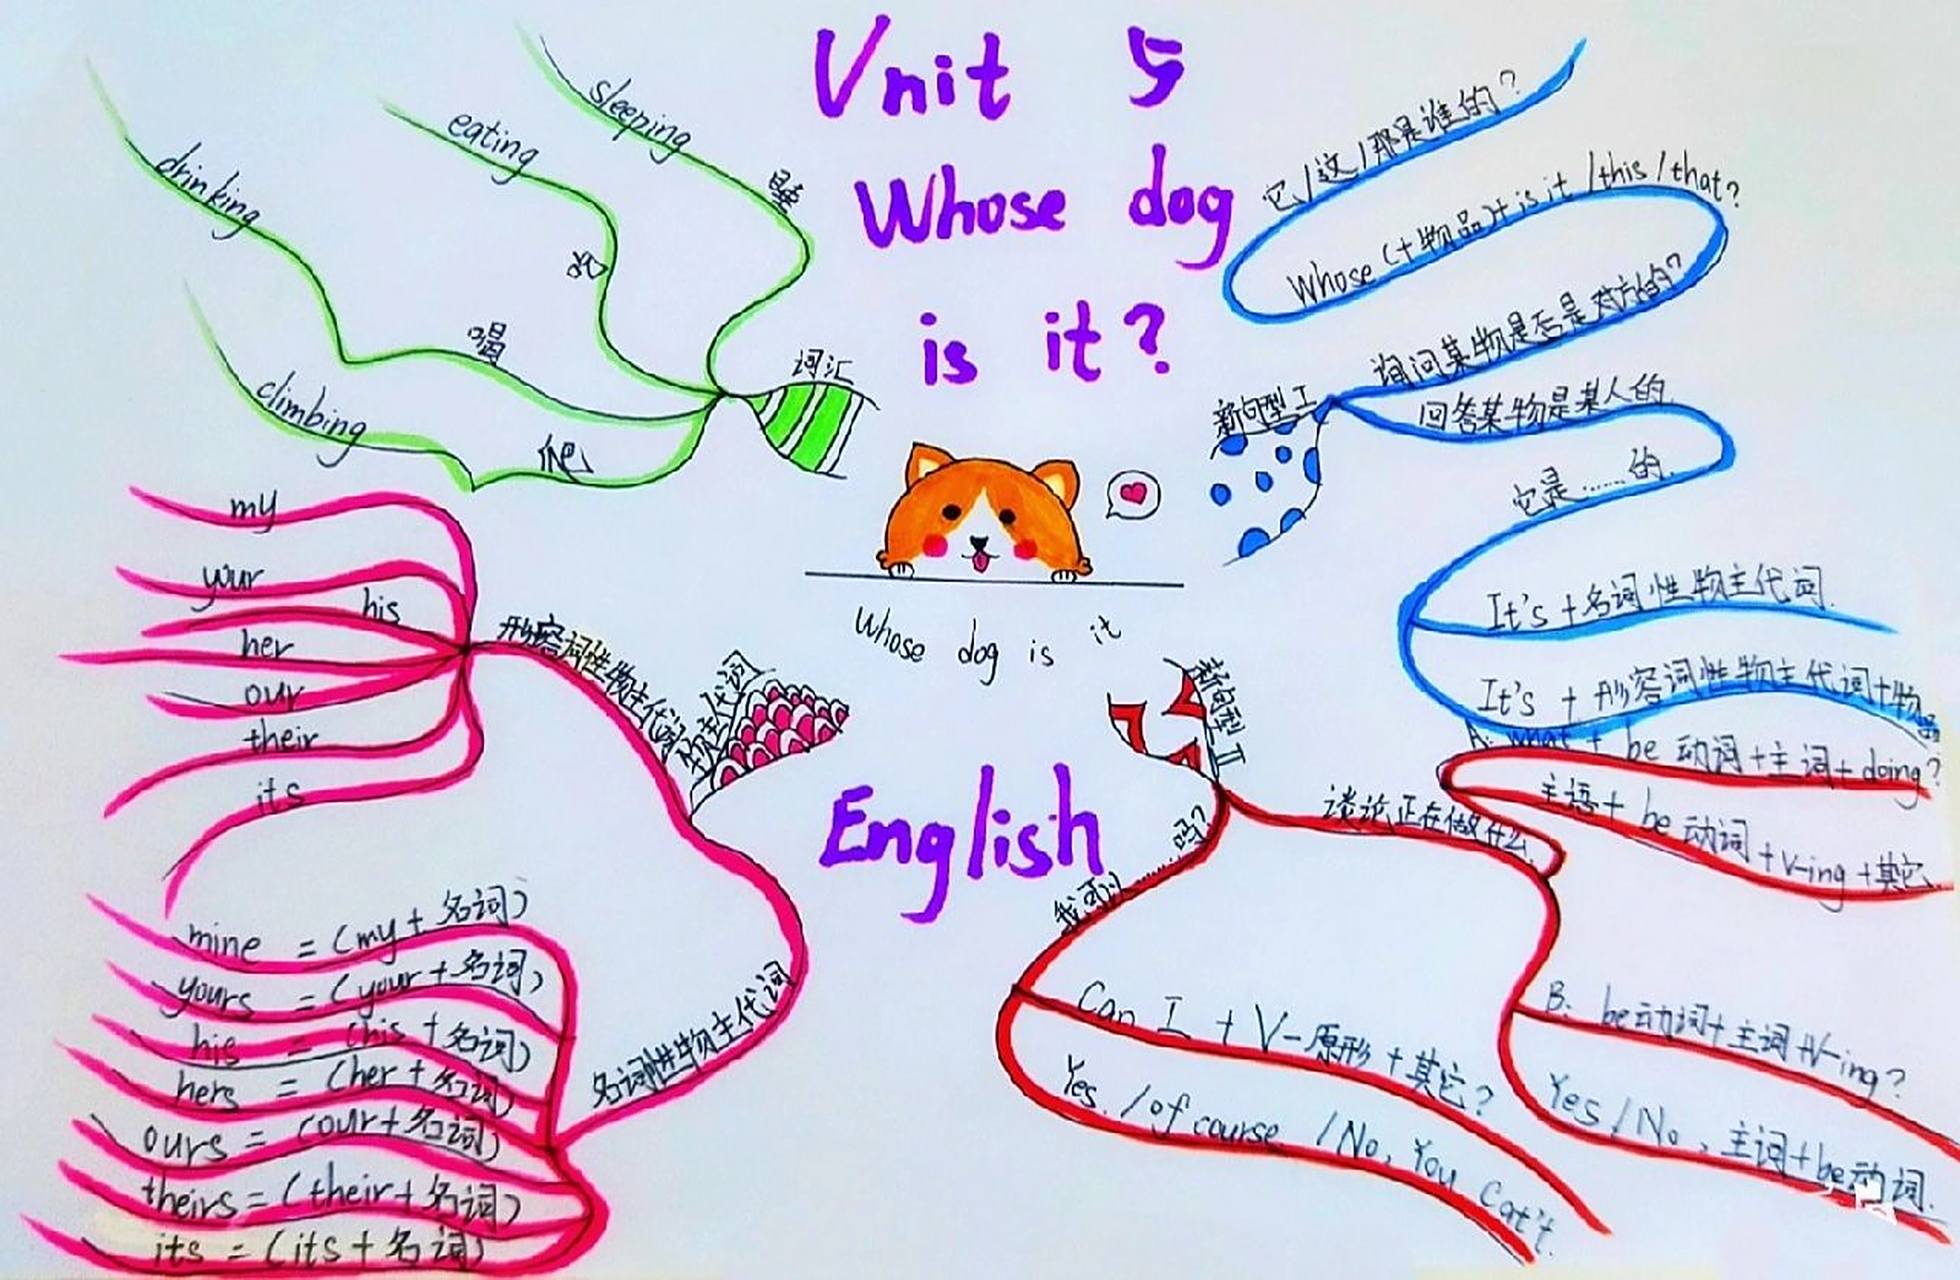 Unit 5
Whose dog
is it?
Whose dog is it
English
词汇
sleeping
睡
eating
吃
drinking
喝
climbing
爬
物主代词
形容词性物主代词
my
your
his
her
our
their
its
名词性物主代词
mine = (my + 名词)
yours = (your + 名词)
his = (his + 名词)
hers = (her + 名词)
ours = (our + 名词)
theirs = (their + 名词)
its = (its + 名词)
新句型 I
询问某物是否是对方的?
Whose (+物品)+ is it /this /that?
它/这/那是谁的?
回答某物是某人的.
它是……的.
It's +名词性物主代词.
It's + 形容词性物主代词+物品
新句型 II
谈论正在做什么.
A: what + be 动词+主词+doing?
主语+ be 动词 +V-ing +其它
B: be动词+主词+V-ing?
Yes / No , 主词+be动词.
我可以……吗?
Can I + V-原形 + 其它?
Yes. /of course. /No, You cat't.